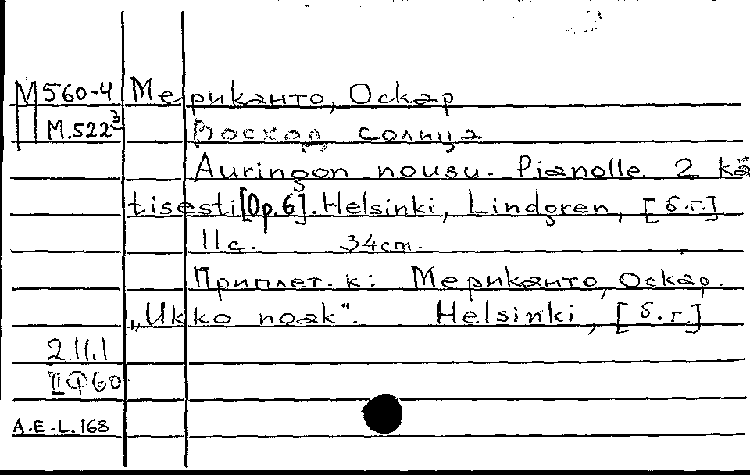 М 560-4 Мериканто, Оскар
М.522³ Восход солнца
Auringon nousu. Pianolle 2 kä
tisesti [Op.6]. Helsinki, Lindgren, [б.г.]
11 с. 34 cm.
Приплет. к: Мериканто, Оскар.
„Ukko noak". Helsinki, [б.г.]
2.11.1
A.E.-L.168